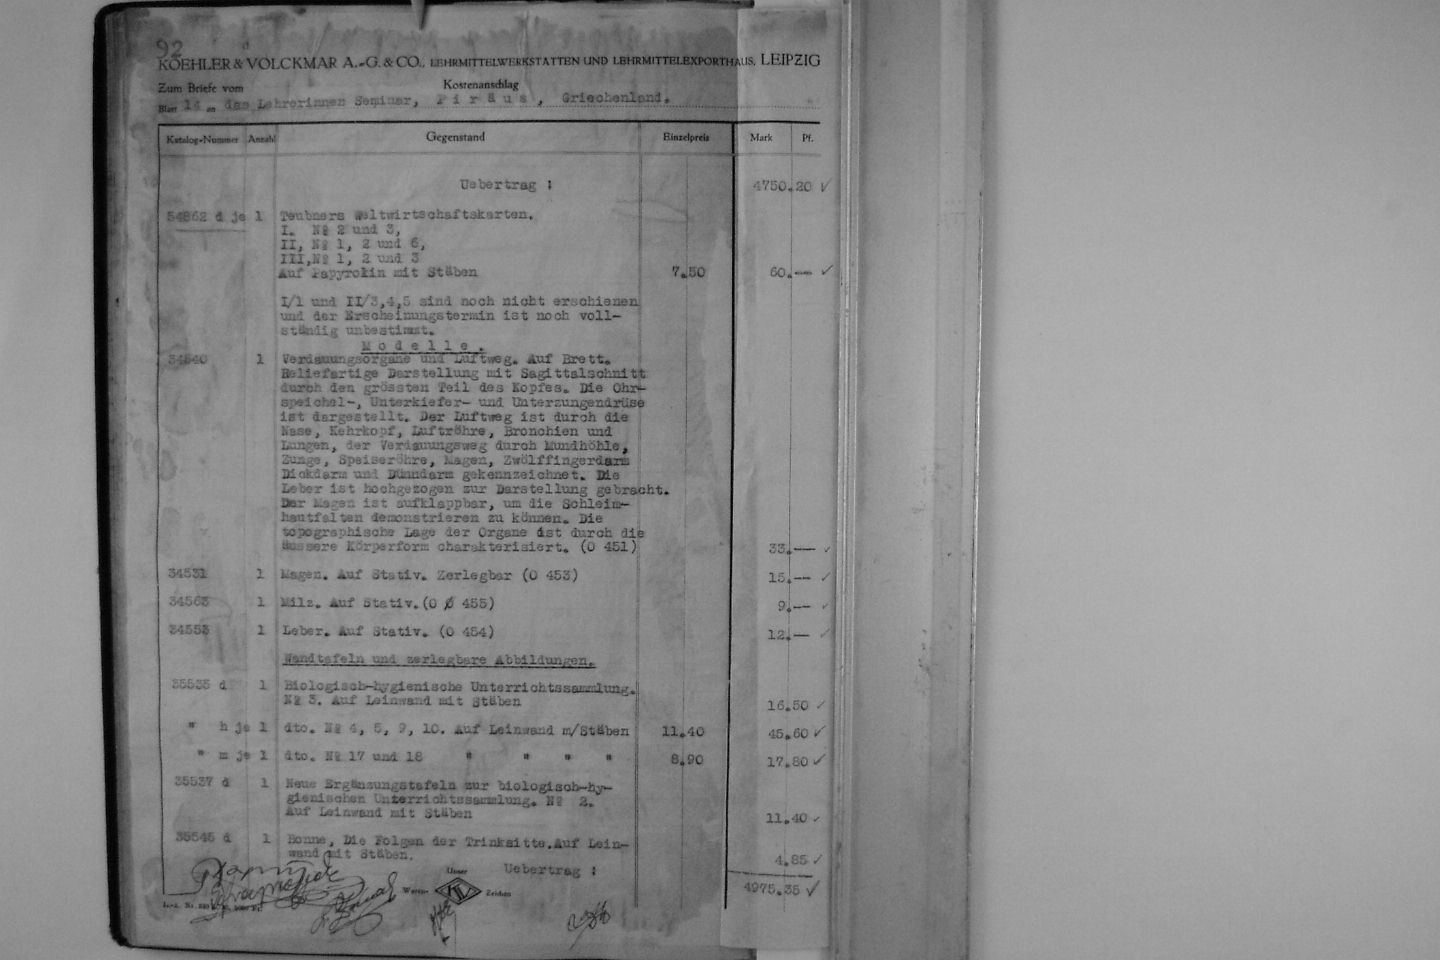 92
KOEHLER & VOLCKMAR A.-G. & CO., LEHRMITTELWERKSTÄTTEN UND LEHRMITTELEXPORTHAUS, LEIPZIG
Zum Briefe vom Kostenanschlag
Blatt 14 an das Lehrerinnen Seminar, Piräus, Griechenland.
Katalog-Nummer Anzahl Gegenstand Einzelpreis Mark Pf.
Uebertrag : 4750.20 ✓
34862 d je 1 Teubners Weltwirtschaftskarten.
I. № 2 und 3,
II, № 1, 2 und 6,
III,№ 1, 2 und 3
Auf Papyrolin mit Stäben 7.50 60.-- ✓
I/1 und II/3,4,5 sind noch nicht erschienen
und der Erscheinungstermin ist noch voll-
ständig unbestimmt.
Modelle.
34540 1 Verdauungsorgane und Luftweg. Auf Brett.
Reliefartige Darstellung mit Sagittalschnitt
durch den grössten Teil des Kopfes. Die Ohr-
speichel-, Unterkiefer- und Unterzungendrüse
ist dargestellt. Der Luftweg ist durch die
Nase, Kehrkopf, Luftröhre, Bronchien und
Lungen, der Verdauungsweg durch Mundhöhle,
Zunge, Speiseröhre, Magen, Zwölffingerdarm
Dickdarm und Dünndarm gekennzeichnet. Die
Leber ist hochgezogen zur Darstellung gebracht.
Der Magen ist aufklappbar, um die Schleim-
hautfalten demonstrieren zu können. Die
topographische Lage der Organe ist durch die
äussere Körperform charakterisiert. (O 451) 33.-- ✓
34531 1 Magen. Auf Stativ. Zerlegbar (O 453) 15.-- ✓
34563 1 Milz. Auf Stativ.(O 455) 9.-- ✓
34553 1 Leber. Auf Stativ. (O 454) 12.-- ✓
Wandtafeln und zerlegbare Abbildungen.
35535 d 1 Biologisch-hygienische Unterrichtssammlung.
№ 3. Auf Leinwand mit Stäben 16.50 ✓
" h je 1 dto. № 4, 5, 9, 10. Auf Leinwand m/Stäben 11.40 45.60 ✓
" m je 1 dto. № 17 und 18 " " " " 8.90 17.80 ✓
35537 d 1 Neue Ergänzungstafeln zur biologisch-hy-
gienischen Unterrichtssammlung. № 2.
Auf Leinwand mit Stäben 11.40 ✓
35545 d 1 Bonne, Die Folgen der Trinksitte.Auf Lein-
wand mit Stäben. 4.85 ✓
Uebertrag : 4975.35 ✓
Unser
Waren- Zeichen